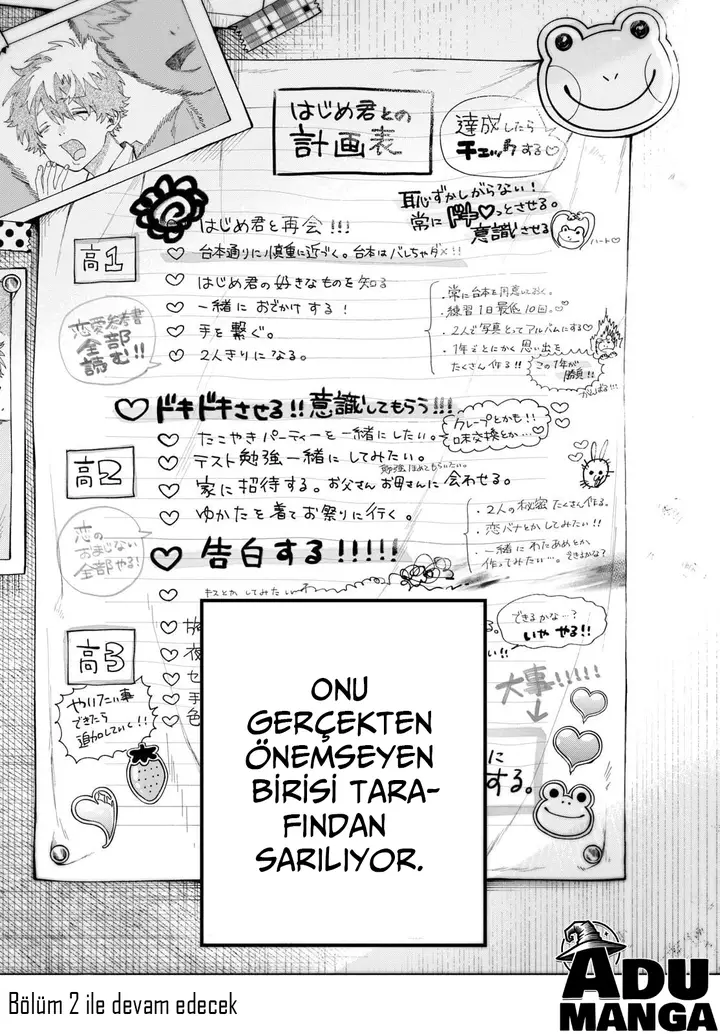 はじめ君との
計画表
達成したら
チェックする♡
恥ずかしがらない！
常にドキ♡っとさせる。
意識させる
ハート♡
高1
はじめ君と再会!!!
♡ 台本通りに慎重に近づく。台本はバレちゃダメ!!
♡ はじめ君の好きなものを知る
♡ 一緒におでかけする！
♡ 手を繋ぐ。
♡ 2人きりになる。
恋愛参考書
全部
読む!!
・常に台本を用意しておく。
・練習1日最低10回。♡
・2人で写真とってアルバムにする♡
・1年ごとにかく思い出を
たくさん作る!!
この1年が
勝負!!
がんばる…
♡ドキドキさせる!!意識してもらう!!!
♡ たこやきパーティーを一緒にしたい。
クレープとかも!!
味交換とか…
高2
♡ テスト勉強一緒にしたい。
勉強ほめてもらいたい。
♡ 家に招待する。お父さんお母さんに会わせる。
♡ ゆかたを着てお祭りに行く。
♡ 告白する!!!!!
恋の
おまじない
全部やる!
・2人の秘密たくさん作る。
・恋バナとかしてみたい!!
・一緒にわたあめとか
作ってみたい…。できるかな？
キスとかしてみたい
高3
できるかな…？
いや やる!!
やりたい事
できたら
追加していく!!
大事!!!!!
に
する。
ONU
GERÇEKTEN
ÖNEMSEYEN
BİRİSİ TARA-
FINDAN
SARILIYOR.
Bölüm 2 ile devam edecek
ADU
MANGA